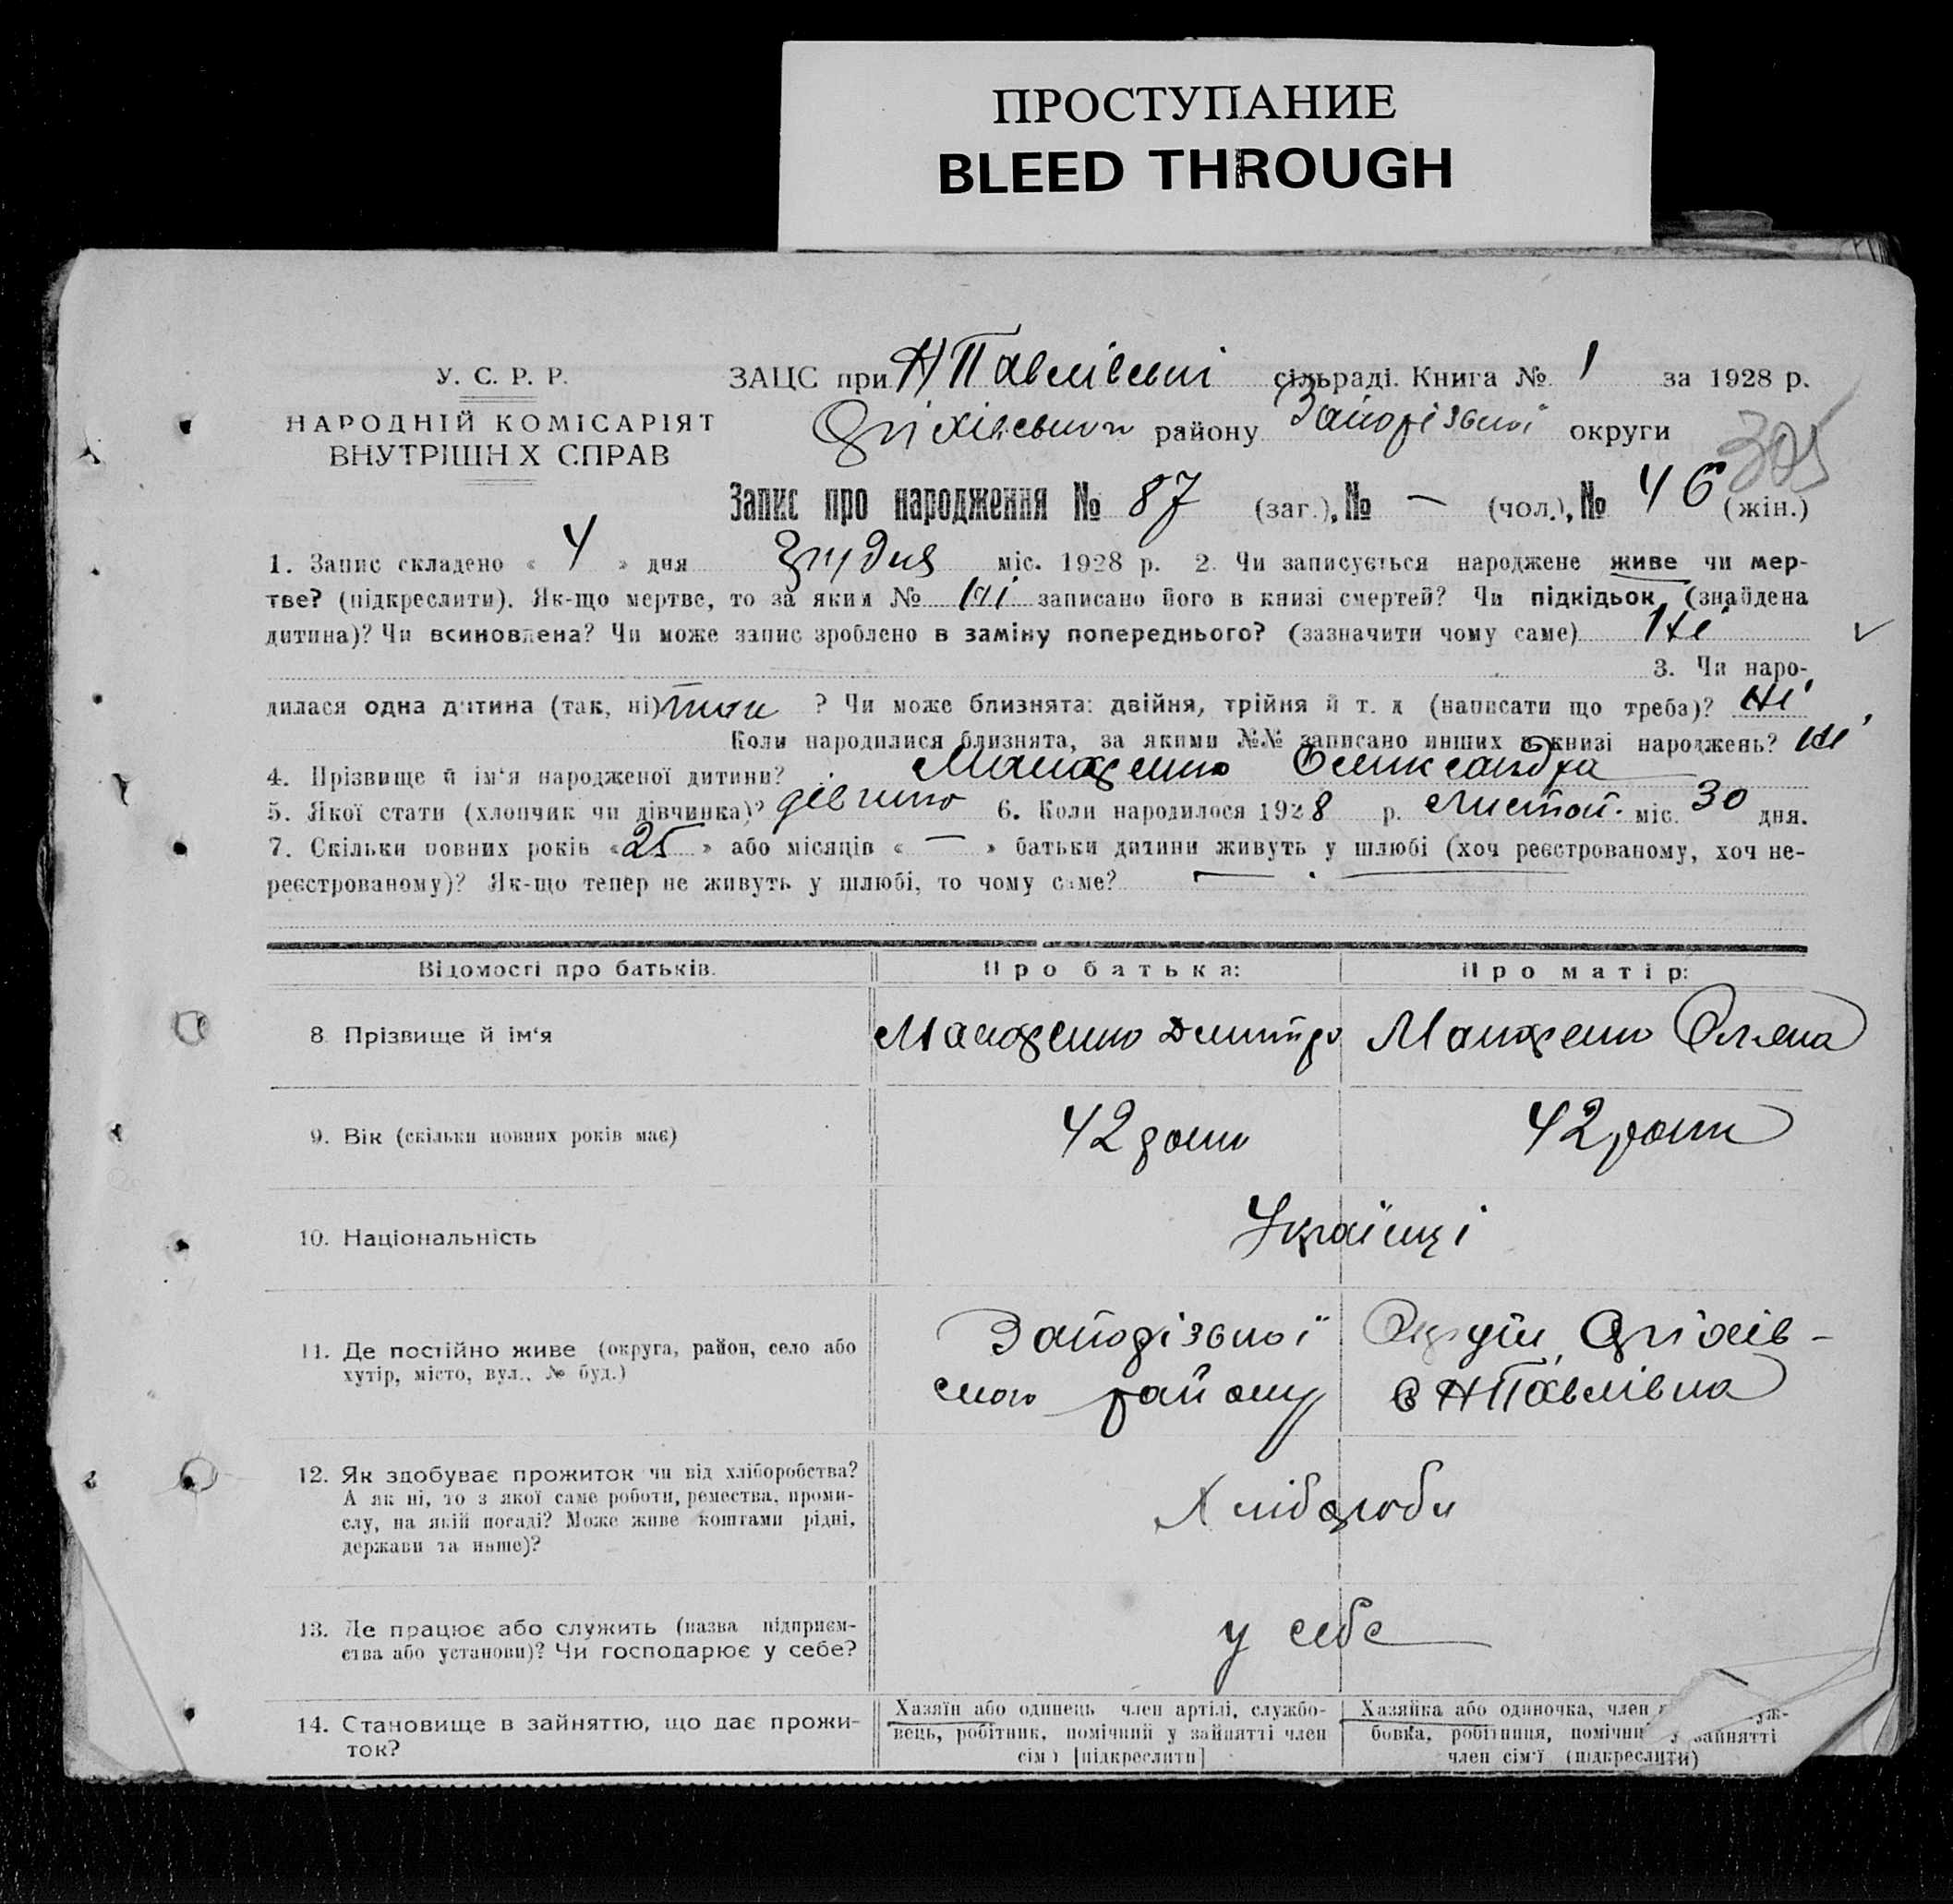 ПРОСТУПАНИЕ
BLEED THROUGH
У. С. Р. Р.
НАРОДНІЙ КОМІСАРІЯТ
ВНУТРІШН Х СПРАВ
ЗАЦС при Н Павлівській сільраді. Книга № 1 за 1928 р.
району Запорізької округи
305
Запис про народження № 87 (заг.), № — (чол.), № 46 (жін.)
1. Запис складено « 4 » дня Грудня міс. 1928 р. 2. Чи записується народжене живе чи мер-
тве? (підкреслити). Як-що мертве, то за яким № Ні записано його в книзі смертей? Чи підкідьок (знайдена
дитина)? Чи всиновлена? Чи може запис зроблено в заміну попереднього? (зазначити чому саме) Ні
3. Чи наро-
дилася одна дитина (так, ні) так ? Чи може близнята: двійня, трійня й т. д (написати що треба)? Ні
Коли народилися близнята, за якими №№ записано инших в книзі народжень? Ні
4. Прізвище й ім'я народженої дитини? Олександра
5. Якої стати (хлопчик чи дівчинка)? 6. Коли народилося 1928 р. Листоп. міс. 30 дня.
7. Скільки повних років « 25 » або місяців « — » батьки дитини живуть у шлюбі (хоч реєстрованому, хоч не-
реєстрованому)? Як-що тепер не живуть у шлюбі, то чому саме? —
Відомості про батьків. Про батька: Про матір:
8 Прізвище й ім'я Дмитро
9. Вік (скільки повних років має) 42 роки 42 роки
10. Національність Українці
11. Де постійно живе (округа, район, село або Запорізької Округи, Оріхів-
хутір, місто, вул., № буд.) ського району с НПавлівка
12. Як здобуває прожиток чи від хліборобства?
А як ні, то з якої саме роботи, ремества, проми- Хлібороби
слу, на якій посаді? Може живе коштами рідні,
держави та инше)?
13. Де працює або служить (назва підприєм- у себе
ства або установи)? Чи господарює у себе?
14. Становище в зайняттю, що дає прожи-
ток?
Хазяїн або одинець член артілі, службо-
вець, робітник, помічний у зайнятті член
сім'ї [підкреслити]
Хазяйка або одиночка, член
бовка, робітниця, помічни у зайнятті
член сім'ї (підкреслити)